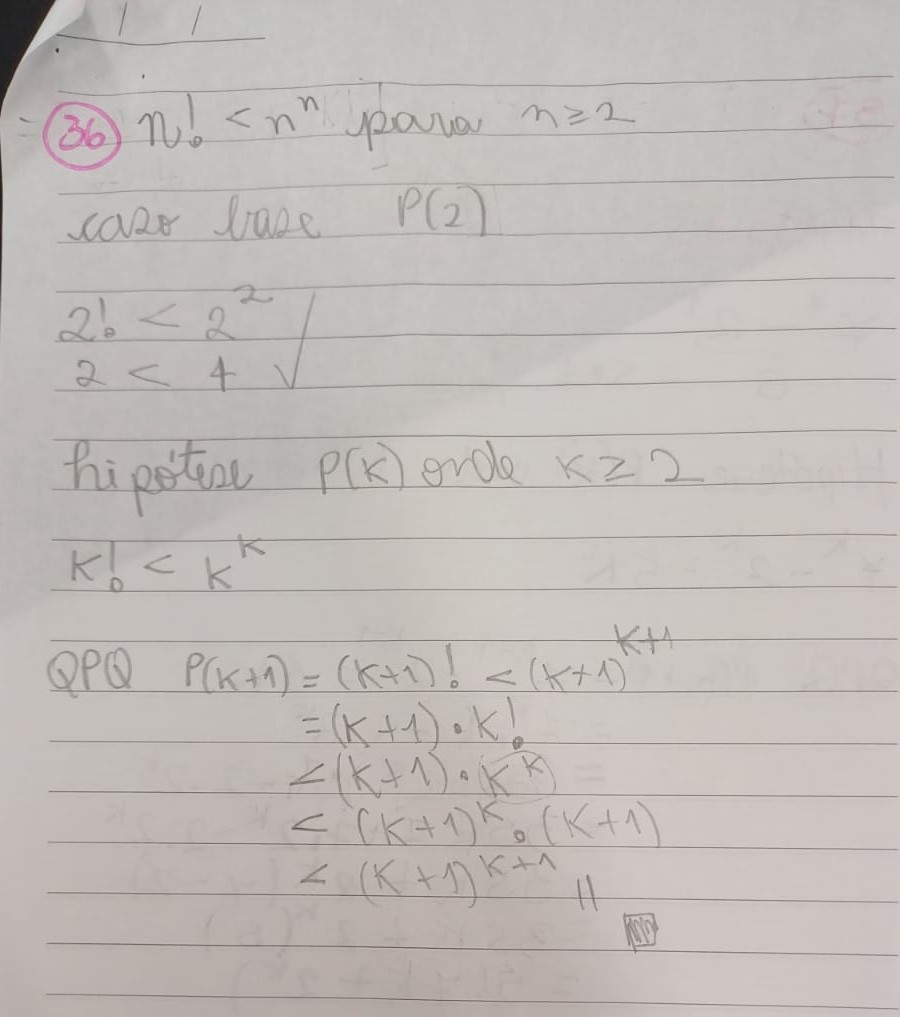 / /
36 n! < n^n para n ≥ 2
caso base P(2)
2! < 2^2
2 < 4 √
hipótese P(K) onde K ≥ 2
K! < K^K
QPQ P(K+1) = (K+1)! < (K+1)^K+1
= (K+1) • K!
< (K+1) • K^K
< (K+1)^K • (K+1)
< (K+1)^K+1 //